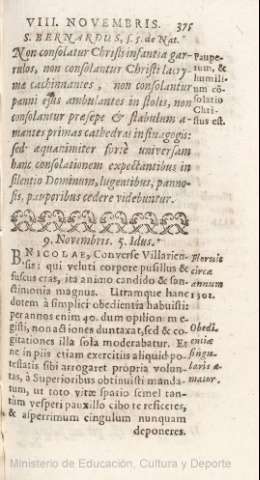 VIII. NOVEMBRIS. 375
S. BERNARDUS, s. 5. de Nat.
Non consolatur Christi infantia gar-
rulos, non consolantur Christi lacry-
mæ cachinnantes, non consolantur
panni ejus ambulantes in stolis, non
consolantur præsepe & stabulum a-
mantes primas cathedras in sinagogis:
sed æquanimiter fortè universam
hanc consolationem expectantibus in
silentio Dominum, lugentibus, panno-
sis, pauporibus cedere videbuntur.
Paupe-
rum, &
humili-
um cõ-
solatio
Chri-
stus est.
9. Novembris. 5. Idus.
B NICOLAE, Converse Villarien-
sis: qui veluti corpore pusillus &
fuscus eras, ita animo candido & san-
ctimonia magnus. Utramque hanc
dotem à simplici obedientia habuisti:
per annos enim 40. dum opilionem e-
gisti, non actiones duntaxat, sed & co-
gitationes illa sola moderabatur. Et
ne in piis etiam exercitiis aliquid po-
testatis sibi arrogaret propria volun-
tas, à Superioribus obtinuisti manda-
tum, ut toto vitæ spatio semel tan-
tùm vesperi pauxillo cibo te reficeres,
& asperrimum cingulum nunquam
deponeres.
Floruit
circa
annum
1301.
Obedi-
entiæ
singu-
laris a-
mator.
Ministerio de Educación, Cultura y Deporte